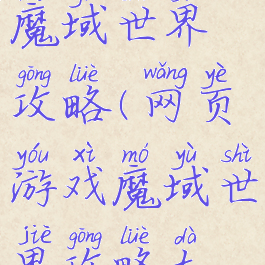 魔域世界
gōng lüè wǎng yè
攻略(网页
yóu xì mó yù shì
游戏魔域世
jiè gōng lüè dà
界攻略大